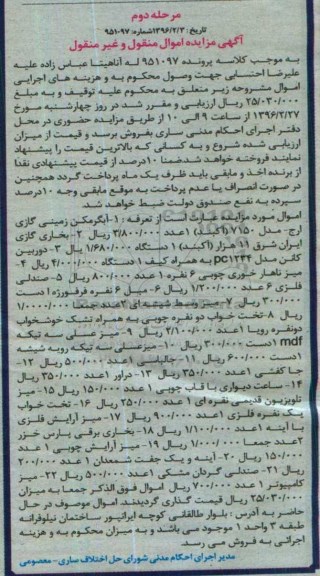 مرحله دوم
تاریخ: ۱۳۹۶/۲/۳ شماره: ۹۵۱۰۹۷
آگهی مزایده اموال منقول و غیر منقول
به موجب کلاسه پرونده ۹۵۱۰۹۷ له آناهیتا عباس زاده علیه
علیرضا احتسابی جهت وصول محکوم به و هزینه های اجرایی
اموال مشروحه زیر متعلق به محکوم علیه توقیف و به مبلغ
۲۵/۰۳۰/۰۰۰ ریال ارزیابی و مقرر شد در روز چهارشنبه مورخ
۱۳۹۶/۲/۲۷ از ساعت ۹ الی ۱۰ از طریق مزایده حضوری در محل
دفتر اجرای احکام مدنی ساری بفروش برسد و قیمت از میزان
ارزیابی شده شروع و به کسانی که بالاترین قیمت را پیشنهاد
نمایند فروخته خواهد شد ضمنا ۱۰ درصد از قیمت پیشنهادی نقدا
از برنده اخذ و مابقی باید ظرف یک ماه پرداخت گردد همچنین
در صورت انصراف یا عدم پرداخت به موقع مابقی وجه ۱۰ درصد
سپرده به نفع صندوق دولت ضبط خواهد شد.
اموال مورد مزایده عبارت است از تعرفه: ۱-آبگرمکن زمینی گازی
ارج- مدل ۷۱۵۰ (آکبند) ۱عدد ۳/۸۰۰/۰۰۰ ریال ۲-بخاری گازی
ایران شرق ۱۱ هزار (آکبند) ۱ دستگاه ۱/۶۸۰/۰۰۰ ریال ۳-دوربین
کانن مدل pc۱۲۳۴ به همراه کیف ۱ دستگاه ۴/۰۰۰/۰۰۰ ریال ۴-
میز ناهار خوری چوبی ۶ نفره ۱ عدد ۸۰۰/۰۰۰ ریال ۵-صندلی
فلزی ۶ عدد ۱/۲۰۰/۰۰۰ ریال ۶-مبل ۶ نفره فرفورژه ۱ دست
۳۰۰/۰۰۰ ریال ۷-میز وسط شیشه ای ۳ عدد جمعا ۱/۰۰۰/۰۰۰
ریال ۸-تخت خواب دو نفره چوبی به همراه تشک خوشخواب
دونفره رویا ۱عدد ۲/۱۰۰/۰۰۰ ریال ۹-میز عسلی سه تیکه
mdf ۱دست ۳۰۰/۰۰۰ ریال ۱۰-میزعسلی سه تیکه رویه شیشه
۱دست ۶۰۰/۰۰۰ ریال ۱۱-جالباسی ۱عدد ۵۰۰/۰۰۰ ریال ۱۲-
جا کفشی ۱عدد ۳۵۰/۰۰۰ ریال ۱۳-دراور ۱عدد ۳۵۰/۰۰۰ ریال
۱۴-ساعت دیواری با قاب چوبی ۱ عدد ۱۵۰/۰۰۰ ریال ۱۵-میز
تلویزیون قدیمی نقره ای ۱ عدد ۲۵۰/۰۰۰ ریال ۱۶-تخت خواب
یک نفره فلزی ۱عدد ۹۰۰/۰۰۰ ریال ۱۷-میز آرایش فلزی
با آینه ۱عدد ۱/۱۰۰/۰۰۰ ریال ۱۸-بخاری برقی پارس خزر
۲عدد جمعا ۱/۰۰۰/۰۰۰ ریال ۱۹-میز آرایش چوبی ۱ عدد
۱۵۰/۰۰۰ ریال ۲۰-آینه و یک جفت شمعدان ۱ عدد ۲۰۰/۰۰۰
ریال ۲۱-صندلی گردان مشکی ۱عدد ۵۰۰/۰۰۰ ریال ۲۲-میز
کامپیوتر ۱ عدد ۷۰۰/۰۰۰ ریال اموال فوق الذکر جمعا به میزان
۲۵/۰۳۰/۰۰۰ ریال قیمت گذاری گردیدند. اموال موصوف در حال
حاضر به آدرس: بلوار طالقانی کوچه ایرانپور ساختمان نیلوفرانه
طبقه ۳ واحد ۱ موجود می باشد و به میزان محکوم به و هزینه
اجرائی به فروش می رسد.
مدیر اجرای احکام مدنی شورای حل اختلاف ساری- معصومی